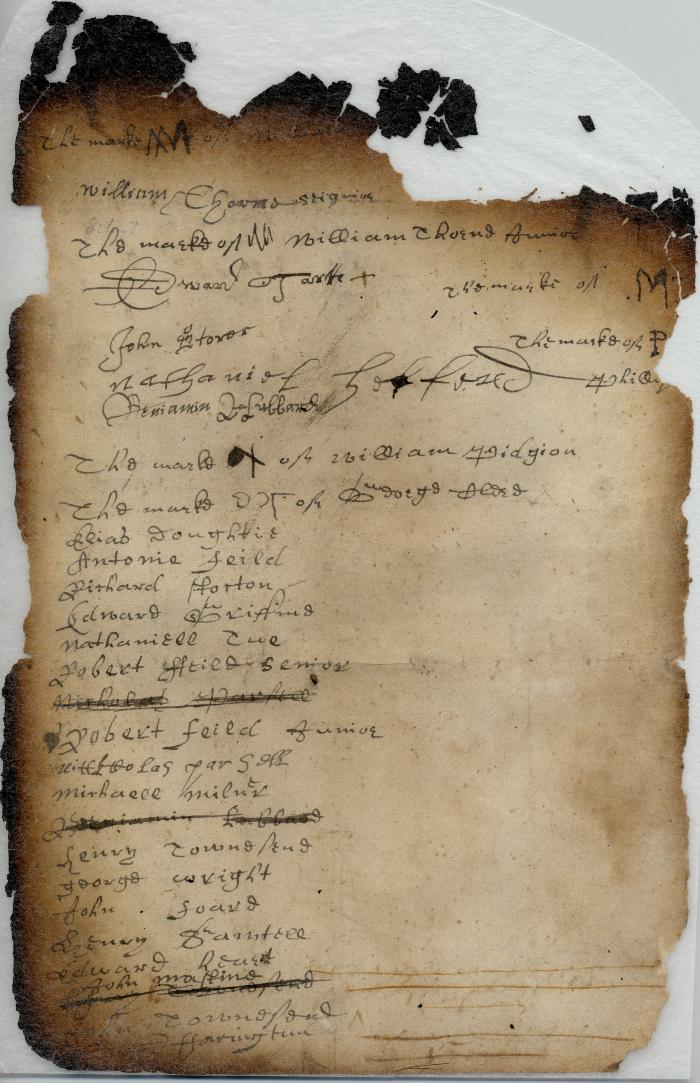 The marke M of William
William Thorne seignior
The marke of M William Thorne Junior
Edward Tarte The marke of M
John Store The marke of P
Nathaniel Heffer Phill
Benjamin Hubbard
The marke of William Pidgion
The marke of George Clere
Elias Doughtie
Antonie Feild
Richard Stocton
Edward Griffine
Nathaniell Tue
Robert Feild senior
Nickolas Parsell
Robert Feild Junior
Nicholas parsell
Michaell Milner
Benjamin Hubbard
Henry Townesend
George Wright
John Foard
Henry Samtell
Edward Heart
John Mastine
Townesend
Farington